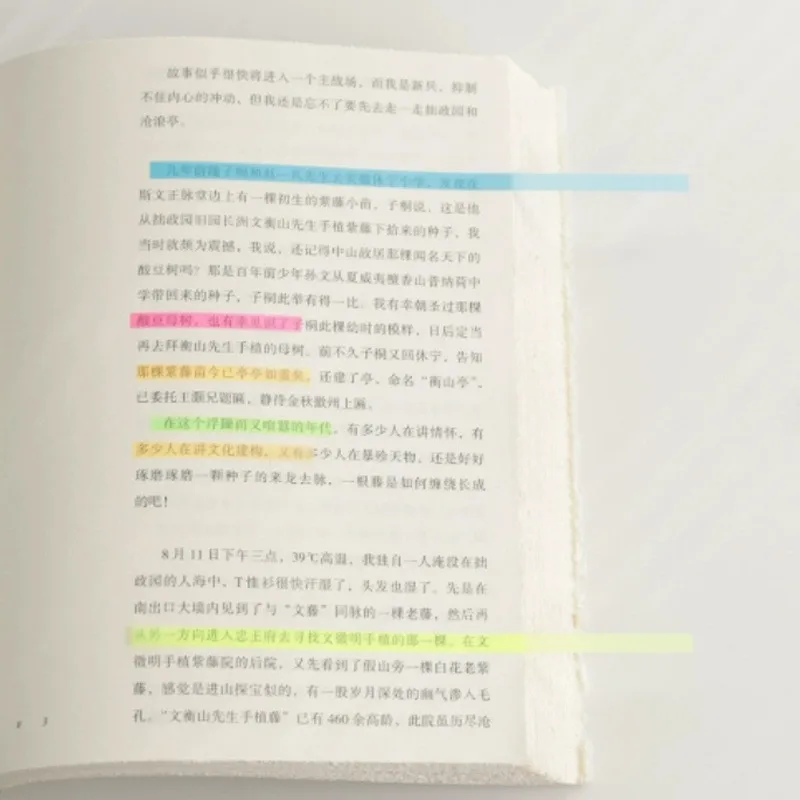 故事似乎很快将进入一个主战场，而我是新兵，抑制
不住内心的冲动，但我还是忘不了要先去走一走拙政园和
沧浪亭。
几年前随子桐和
先生去
休宁小学，发现在
斯文正脉堂边上有一棵初生的紫藤小苗，子桐说，这是他
从拙政园旧园长洲文衡山先生手植紫藤下拾来的种子，我
当时就颇为震撼，我说，还记得中山故居那棵闻名天下的
酸豆树吗？那是百年前少年孙文从夏威夷檀香山普纳荷中
学带回来的种子，子桐此举有得一比。我有幸朝圣过那棵
酸豆母树，也有幸见识了子桐此棵幼时的模样，日后定当
再去拜衡山先生手植的母树。前不久子桐又回休宁，告知
那棵紫藤苗今已亭亭如盖矣，还建了亭，命名“衡山亭”，
已委托王灏兄题匾，静待金秋徽州上匾。
在这个浮躁而又喧嚣的年代，有多少人在讲情怀，有
多少人在讲文化建构，又有多少人在暴殄天物，还是好好
琢磨琢磨一颗种子的来龙去脉，一根藤是如何缠绕长成
的吧！
8月11日下午三点，39℃高温，我独自一人淹没在拙
政园的人海中，T恤衫很快汗湿了，头发也湿了。先是在
南出口大墙内见到了与“文藤”同脉的一棵老藤，然后再
从另一方向进入忠王府去寻找文徵明手植的那一棵。在文
徵明手植紫藤院的后院，又先看到了假山旁一棵白花老紫
藤，感觉是进山探宝似的，有一股岁月深处的幽气渗入毛
孔。“文衡山先生手植藤”已有460余高龄，此院虽历尽沧
3